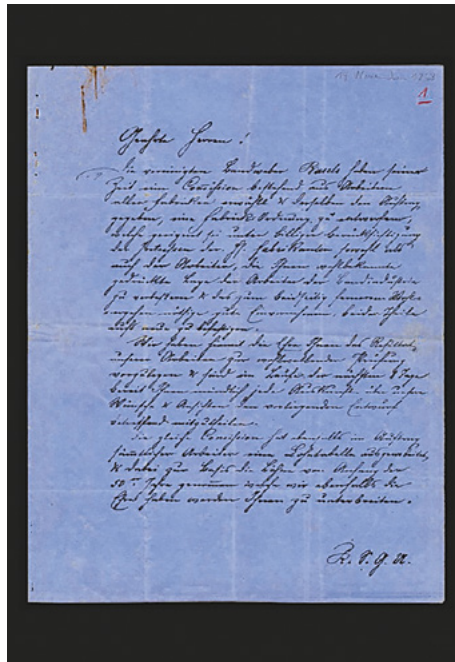 1
Geehrte Herren!
Die vereinigten Bandweber Basels haben seiner
Zeit eine Commission bestehend aus Arbeitern
aller Fabriken erwählt & derselben den Auftrag
gegeben, eine Fabrik-Ordnung zu entwerfen,
welche geeignet sei unter billiger Berücksichtigung
der Interessen der HH. Fabrikanten sowohl als
auch der Arbeiter, die Ihnen wohlbekannte
gedrückte Lage der Arbeiter der Bandindustrie
zu verbessern & das zum beidseitig
nöthige gute Einvernehmen beider Theile
aufs neue zu befestigen.
Wir haben hiemit die Ehre Ihnen das Resultat
unserer Arbeiten zur Prüfung
vorzulegen & sind im Laufe der nächsten 8 Tage
bereit Ihnen mündlich jede Auskunft über unsere
Wünsche & Ansichten den vorliegenden Entwurf
betreffend mitzutheilen.
Die gleiche Commission hat ebenfalls im Auftrag
sämmtlicher Arbeiter eine Lohntabelle ausgearbeitet,
& dabei zur Basis die Löhne von Anfang der
50er Jahre genommen welche wir ebenfalls die
Ehre haben werden Ihnen zu unterbreiten.